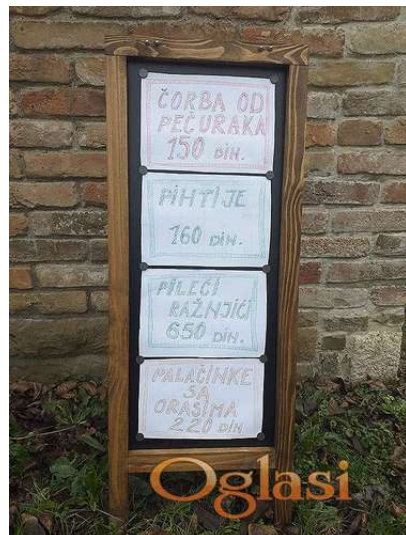 ČORBA OD
PEČURAKA
150 DIN.
PIHTIJE
160 DIN.
PILEĆI
RAŽNJIĆI
650 DIN.
PALAČINKE
SA
ORASIMA
220 DIN
Oglasi